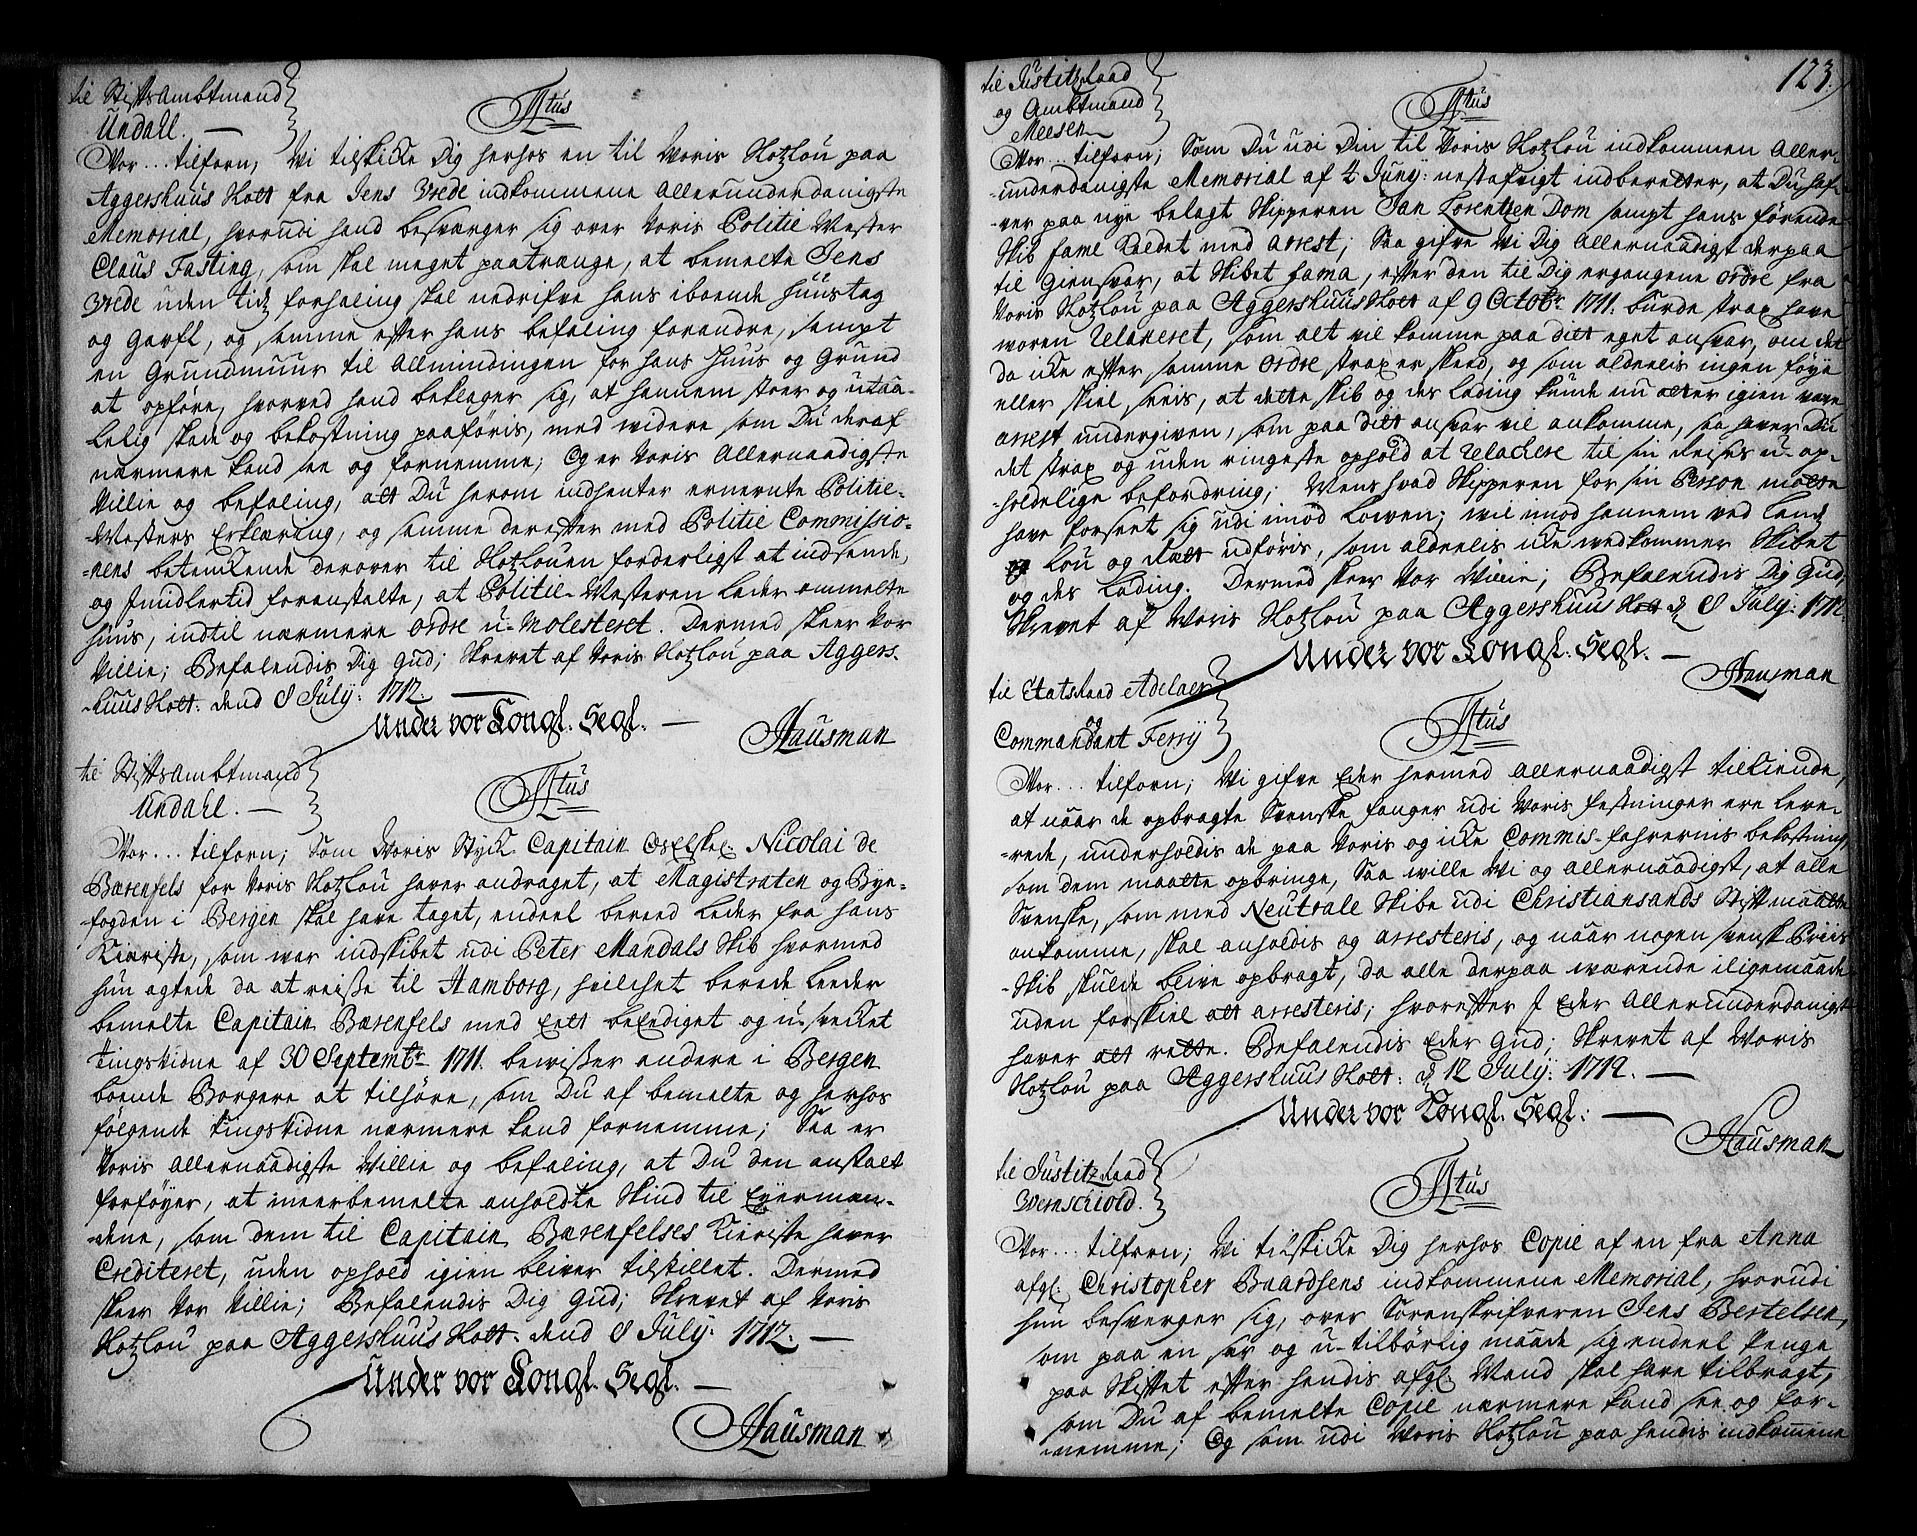 til StiftsAmbtmand
Undall. —
Atus
Vor . . . tilforn; Vi tilskicke Dig herhos en til Voris Hotzlou paa
Aggershuus Slott fra Jens Wrede indkommene Allerunderdanigste
Memorial, hvorudi hand besværger sig over Voris Politie Mester
Claus Fasting, som skal meget paatrænge, at bemelte Jens
Wrede uden tids forhaling skal nedrifve hans iboende Huustag
og Gavfl, og samme efter hans befaling forandre, sampt
en Grundmuur til Allmindingen for hans Huus og Grund
at opføre, hvorved hand beklager sig, at hannem stoer og utaa-
lelig skade og bekostning paaføris, med widere som Du deraf
nærmere kand see og fornemme; Og er Voris Allernaadigste
Villie og befaling, att Du herom indhenter ernernte Politie-
Mesters Erklæring, og samme derefter med Politie Commissio-
nens betenckende derover til Hotzlouen forderligst at indsende,
og Imidlertid foranstalte, at Politie-Mesteren lader ommelte
huus, indtil nærmere Ordre u-molesteret. Dermed skeer Vor
Villie; Befalendis Dig Gud; Skrevet af Voris Hotzlou paa Aggers-
huus Slott: dend 8 July: 1712.
Under vor Kongl. Segl. —
Hausman
til StiftsAmbtmand
Undall. —
Atus
Vor . . . tilforn; Som Woris Stÿck Capitain Nicolai de
Bærenfels for Voris Hotzlou haver andraget, at Magistraten og Bye-
fogden i Bergen skal have taget, endeel bereed Leder fra hans
Kieriste, som war indskibet udi Peter Mandals Skib hvormed
hun agtede da at reise til Hamborg, hvilchet berede Leeder
bemelte Capitain Bærenfels med Eett beediget og u-svecket
tingsvidne af 30 Septembr 1711. bewiser andere i Bergen
boende Borgere at tilhøre, som Du af bemelte og herhos
følgende tingsvidne nærmere kand fornemme; Saa er
Voris Allernaadigste Villie og befaling, at Du den anstalt
forføyer, at meerbemelte anholdte Skind til Eyermæn-
dene, som dem til Capitain Bærenfelses Kieriste haver
Crediteret, uden ophold igien bliver tilstillet. Dermed
skeer Vor Villie; Befalendis Dig Gud; Skrevet af Voris
Hotzlou paa Aggershuus Slott: dend 8 July: 1712. —
Under vor Kongl. Segl. —
Hausman
123.
til JustitzRaad
og Ambtmand
Meesen
Atus
Vor . . . tilforn; Som Du udi Din til Voris Hotzlou indkommen Aller-
underdanigste Memorial af 4 Juny: nestafvigt indberetter, at Du haf-
ver paa nye belagt Skipperen Jan Lorentzen Dom sampt hans førende
Skib fame kaldet med arrest; Saa gifve Vi Dig Allernaadigst derpaa
til Giensvar, at Skibet fama, efter den til Dig ergangene ordre fra
Voris Hotzlou paa Aggershuus Slott af 9 Octobr: 1711. burde strax have
woren relaxeret, som alt vil komme paa ditt eget ansvar, om det
da icke efter samme Ordre strax er skeed, og som aldeelis ingen føye
eller skiel sees, at dette skib og des lading kunde nu atter igien være
arrest undergiven, som paa ditt ansvar vil ankomme, saa haver Du
det strax og uden ringeste ophold at relaxere til sin Reises u-op-
holdelige befordring; Mens hvad Skipperen for sin Person maatte
have forseet sig udi imod Lowen; wil imod hannem ved Land
Lou og Rætt udføris, som aldeelis icke vedkommer Skibet
og des Lading. Dermed skeer Vor Villie; Befalendis Dig Gud,
Skrevet af Voris Hotzlou paa Aggershuus Slott d 8 July: 1712.
Under vor Kongl. Segl. —
Hausman
til EtatsRaad Adelaer
og
Commandant Ferry
Atus
Vor . . . tilforn; Vi gifve Eder hermed Allernaadigst tilkiende,
at naar de opbragte Svenske fanger udi Voris festninger ere leve-
rede, underholdis de paa Voris og icke Commis-fahrernis bekostning,
som dem maatte opbringe, Saa wille Vi og allernaadigst, at alle
Svenske, som med Neutrale Skibe udi Christiansands Stift maatte
ankomme, skal anholdis og arresteris, og naar nogen svensk Priis
Skib skulde blive opbragt, da alle derpaa wærende iligemaade
uden forskiel att arresteris; hvorefter I Eder Allerunderdanigst
haver att rette. Befalendis Eder Gud; Skrevet af Woris
Hotzlou paa Aggershuus Slott: d 12 July: 1712. —
Under vor Kongl. Segl: —
Hausman
til JustitzRaad
Wernschiold.
Atus
Vor . . . tilforn; Vi tilskicke Dig herhos Copie af en fra Anna
afgl: Christopher Baardsens indkommene Memorial, hvorudi
hun besverger sig, over Sorenskrifveren Jens Bertelsen,
som paa en sær og u-tilbørlig maade sig endeel penge
paa Skiftet efter hendis afgl. Mand skal have tilbragt,
som Du af bemelte Copie nærmere kand see og for-
nemme; Og som udi Voris Hotzlou paa hendis indkomene